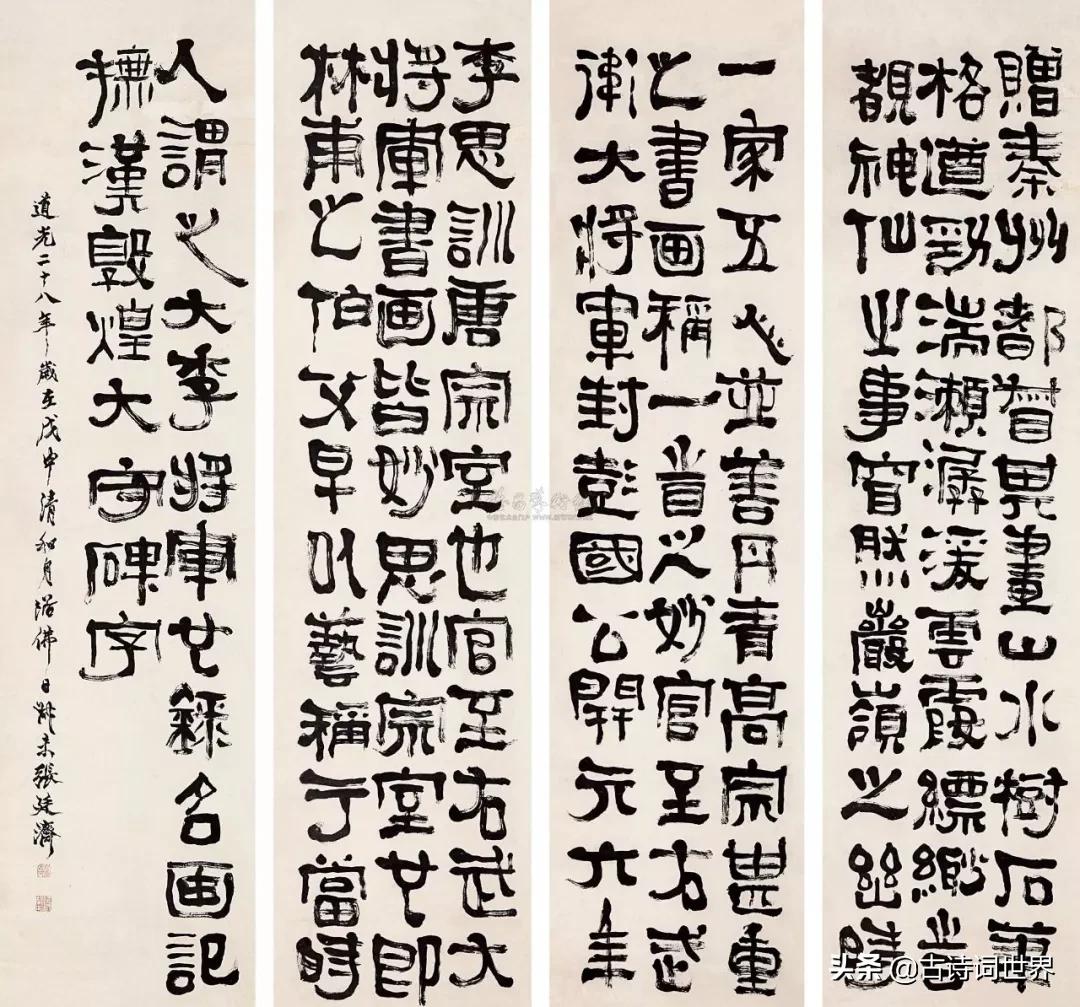 贈秦州都督其畫山水樹石筆
格遒勁湍瀨潺湲雲霞縹緲峕
覩神仙之事窅然巖嶺之幽時
一家五人並善丹青高宗甚重
之書画稱一峕之妙官至右武
衛大將軍封彭國公開元六年
李思訓唐宗室也官至右武大
將軍書画皆妙思訓宗室也即
林甫之伯父早以藝稱于當時
人謂之大李將軍也錄名画記
撫漢敦煌大守碑字
道光二十八年歲在戊申清和月浴佛日叔未張廷濟
头条 @古诗词世界